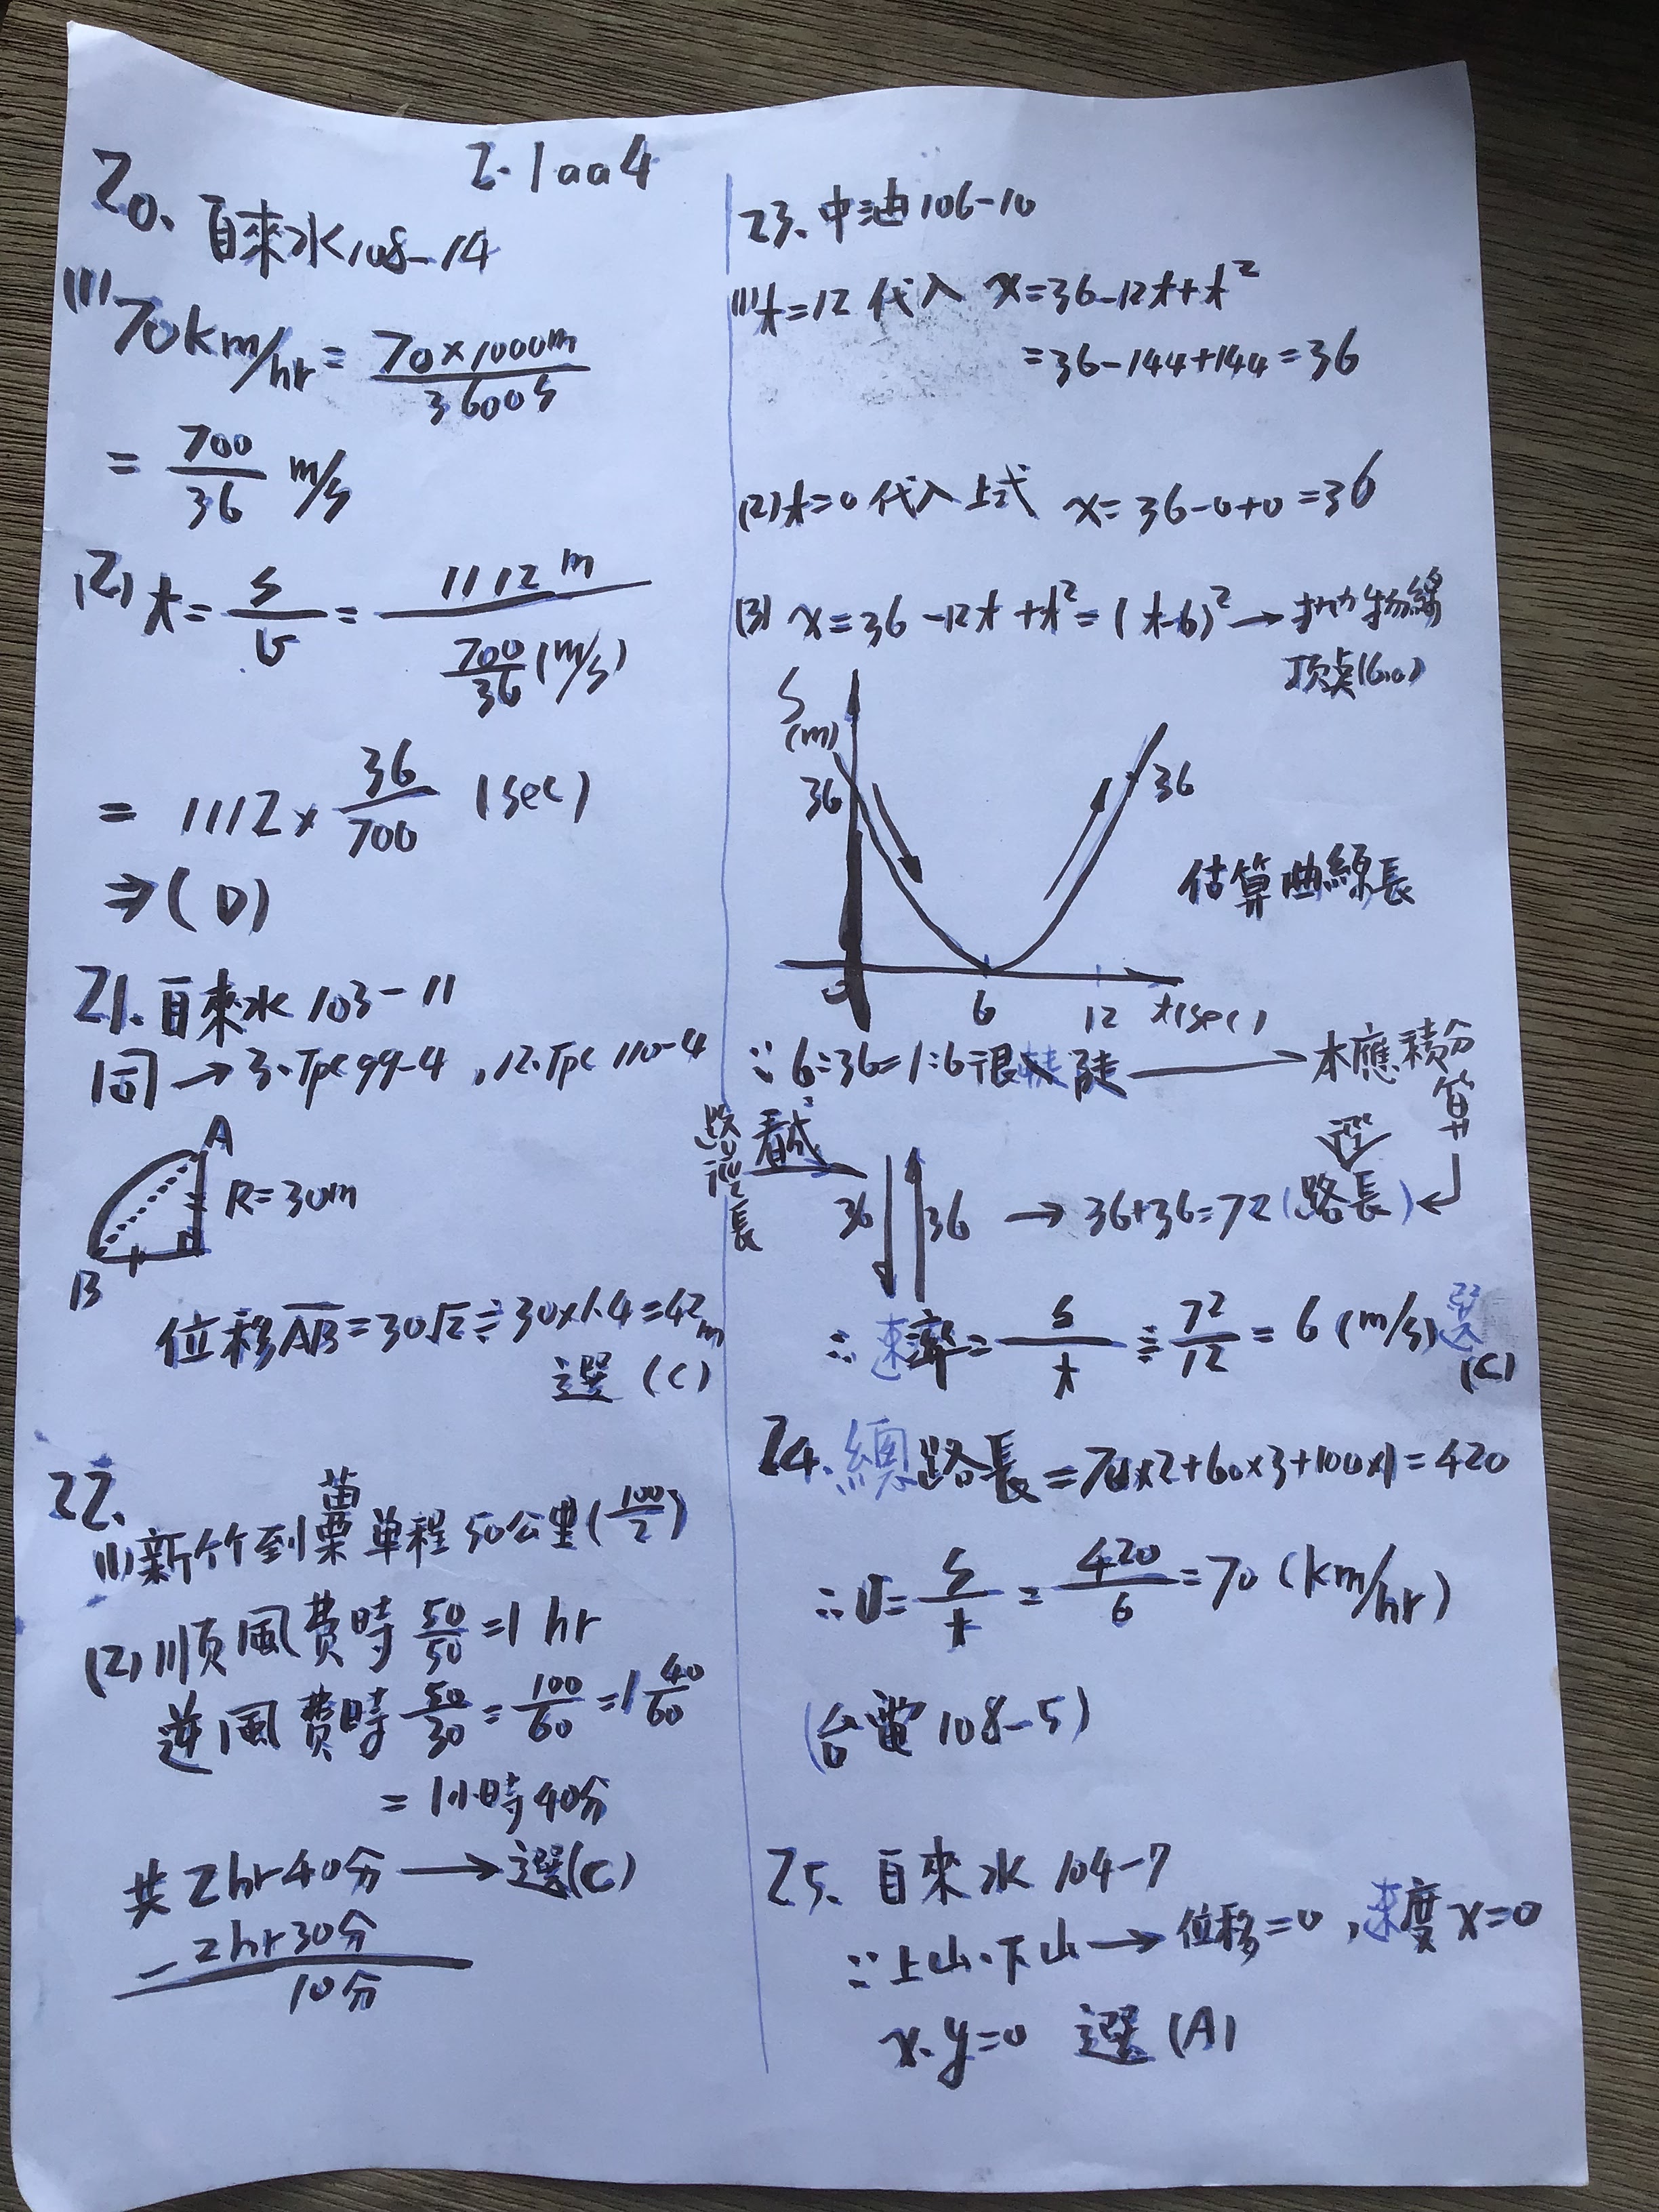 2.1aa4
20. 自來水108-14
(1) 70km/hr = 70×1000m / 3600s
= 700/36 m/s
(2) t = s/v = 1112m / 700/36 (m/s)
= 1112 × 36/700 (sec)
⇒(D)
21. 自來水 103-11
同 → 3.Tpc 99-4 , 12.Tpc 110-4
A
R=30m
B
位移AB=30√2≒30×1.4=42m
選 (C)
22.
(1)新竹到苗栗單程50公里(100/2)
(2)順風費時 50/50 =1 hr
逆風費時 50/30 = 100/60 = 1 40/60
= 1小時40分
共2hr40分 → 選(C)
- 2hr30分
10分
23. 中油106-10
(1)t=12 代入 x=36-12t+t²
=36-144+144=36
(2)t=0 代入上式 x=36-0+0=36
(3) x=36-12t+t²=(t-6)² → 拋物線
頂点(6,0)
S
(m)
36
36
估算曲線長
0
6
12
t(sec)
∵6:36=1:6很陡 → 本應積分
算
路徑長
看成
逕
36
36 → 36+36=72(路長)
∴速率= s/t ≒ 72/12 = 6 (m/s)選
(C)
24. 總路長=70×2+60×3+100×1=420
∴v= s/t = 420/6 =70 (km/hr)
(台電108-5)
25. 自來水 104-7
∵上山、下山 → 位移=0 , 速度x=0
x.y=0 選(A)